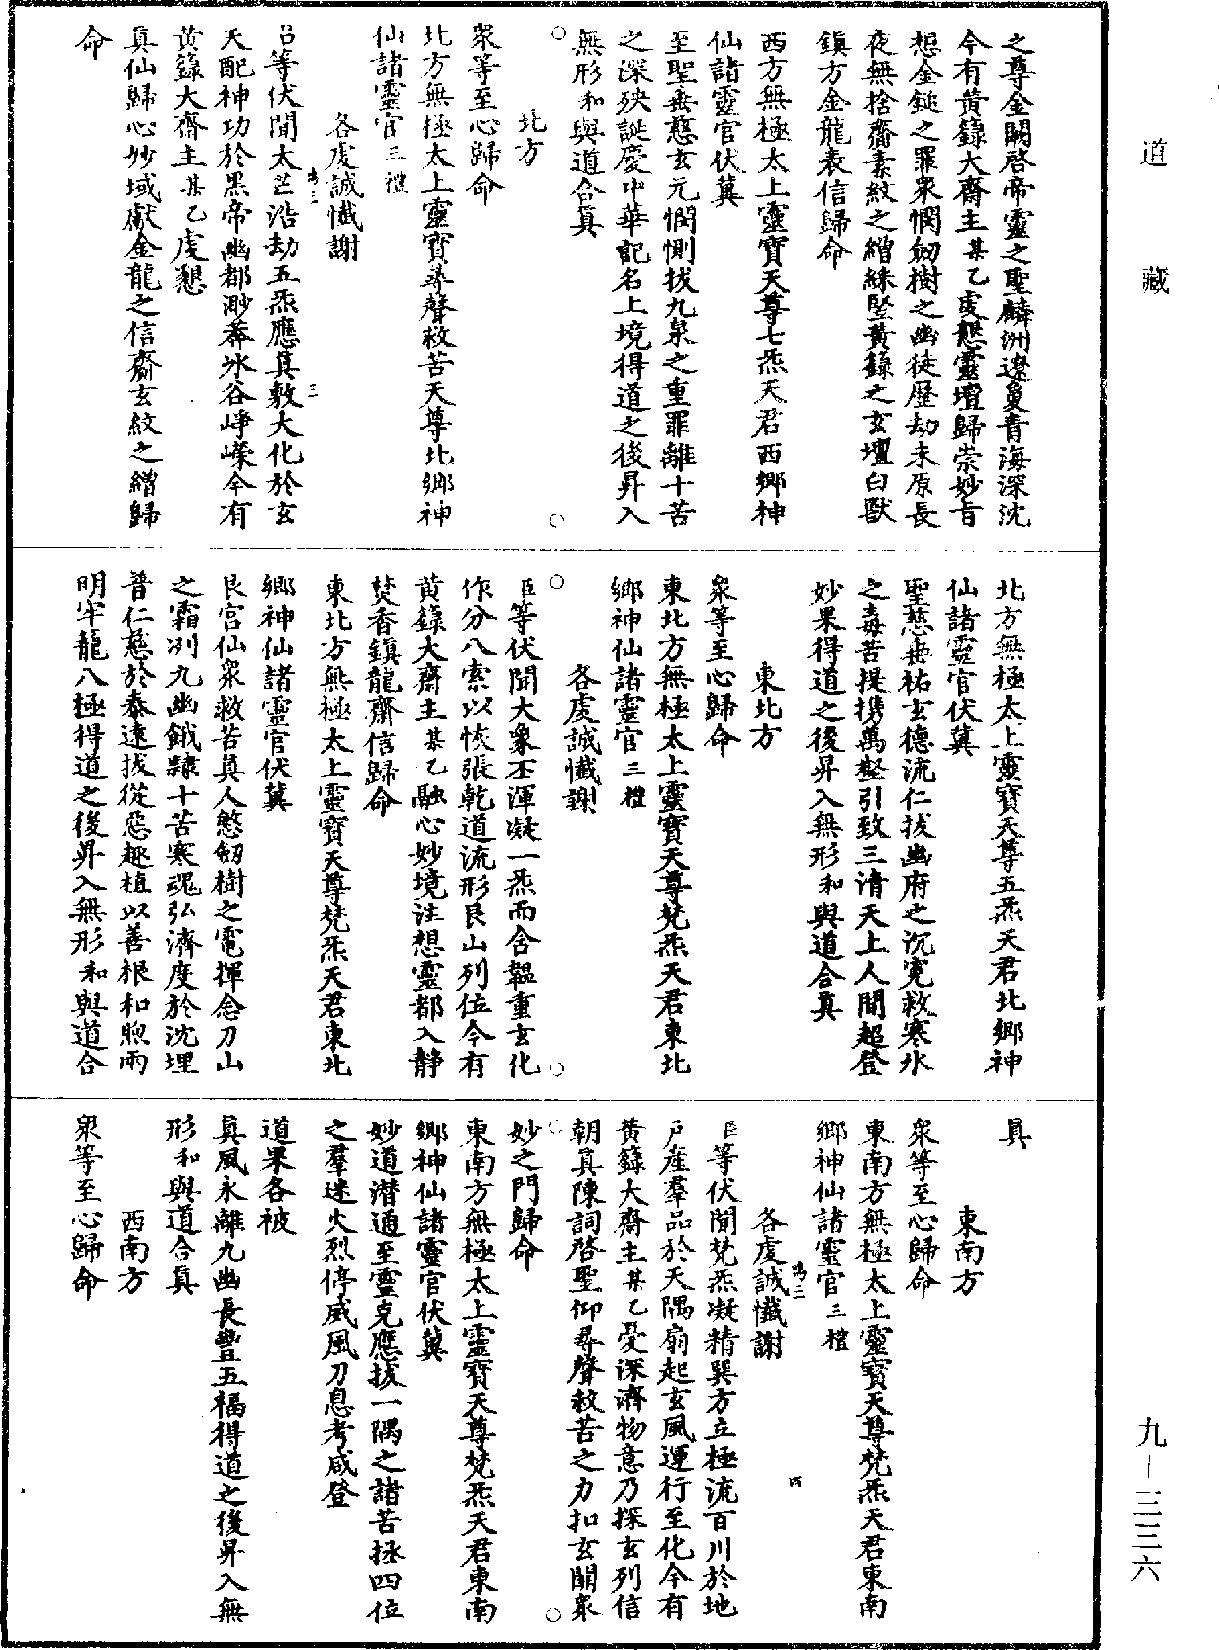 道藏
之尊金闕啓帝靈之聖麟洲邀敻青海深沈
今有黃籙大齋主某乙虔懇靈壇歸崇妙旨
想金鎚之罪衆憫劒樹之幽徒歷劫未原長
夜無捨齎素紋之繒綵堅黃籙之玄壇白獸
鎮方金龍表信歸命
西方無極太上靈寶天尊七炁天君西鄉神
仙諸靈官伏冀
至聖垂慈玄元憫惻拔九泉之重罪離十苦
之深殃誕慶中華記名上境得道之後昇入
無形和與道合眞
北方
衆等至心歸命
北方無極太上靈寶尋聲救苦天尊北鄉神
仙諸靈官三禮
各虔誠懺謝
臣等伏聞太茫浩劫五炁應眞敷大化於玄
天配神功於黑帝幽都渺莽氷谷崢嶸今有
黃籙大齋主某乙虔懇
眞仙歸心妙域獻金龍之信齎玄紋之繒歸
命
北方無極太上靈寶天尊五炁天君北鄉神
仙諸靈官伏冀
聖慈垂祐玄德流仁拔幽府之沉寃救寒氷
之毒苦提携萬類引致三清天上人間超登
妙果得道之後昇入無形和與道合眞
東北方
衆等至心歸命
東北方無極太上靈寶天尊梵炁天君東北
鄉神仙諸靈官三禮
各虔誠懺謝
臣等伏聞大象丕渾凝一炁而含韞重玄化
作分八索以恢張乾道流形艮山列位今有
黃籙大齋主某乙融心妙境注想靈都入靜
焚香鎮龍齎信歸命
東北方無極太上靈寶天尊梵炁天君東北
鄉神仙諸靈官伏冀
艮宮仙衆救苦眞人愍劒樹之電揮念刀山
之霜冽九幽餓隸十苦寒魂弘濟度於沈埋
普仁慈於泰遠拔從惡趣植以善根和煦雨
明牢籠八極得道之後昇入無形和與道合
眞
東南方
衆等至心歸命
東南方無極太上靈寶天尊梵炁天君東南
鄉神仙諸靈官三禮
各虔誠懺謝
臣等伏聞梵炁凝精巽方立極流百川於地
戶產羣品於天隅扇起玄風運行至化今有
黃籙大齋主某乙憂深濟物意乃探玄列信
朝眞陳詞啓聖仰尋聲救苦之力扣玄關衆
妙之門歸命
東南方無極太上靈寶天尊梵炁天君東南
鄉神仙諸靈官伏冀
妙道潛通至靈克應拔一隅之諸苦拯四位
之羣迷火烈停威風刀息考咸登
道果各被
眞風永離九幽長豐五福得道之後昇入無
形和與道合眞
西南方
衆等至心歸命
九–三三六